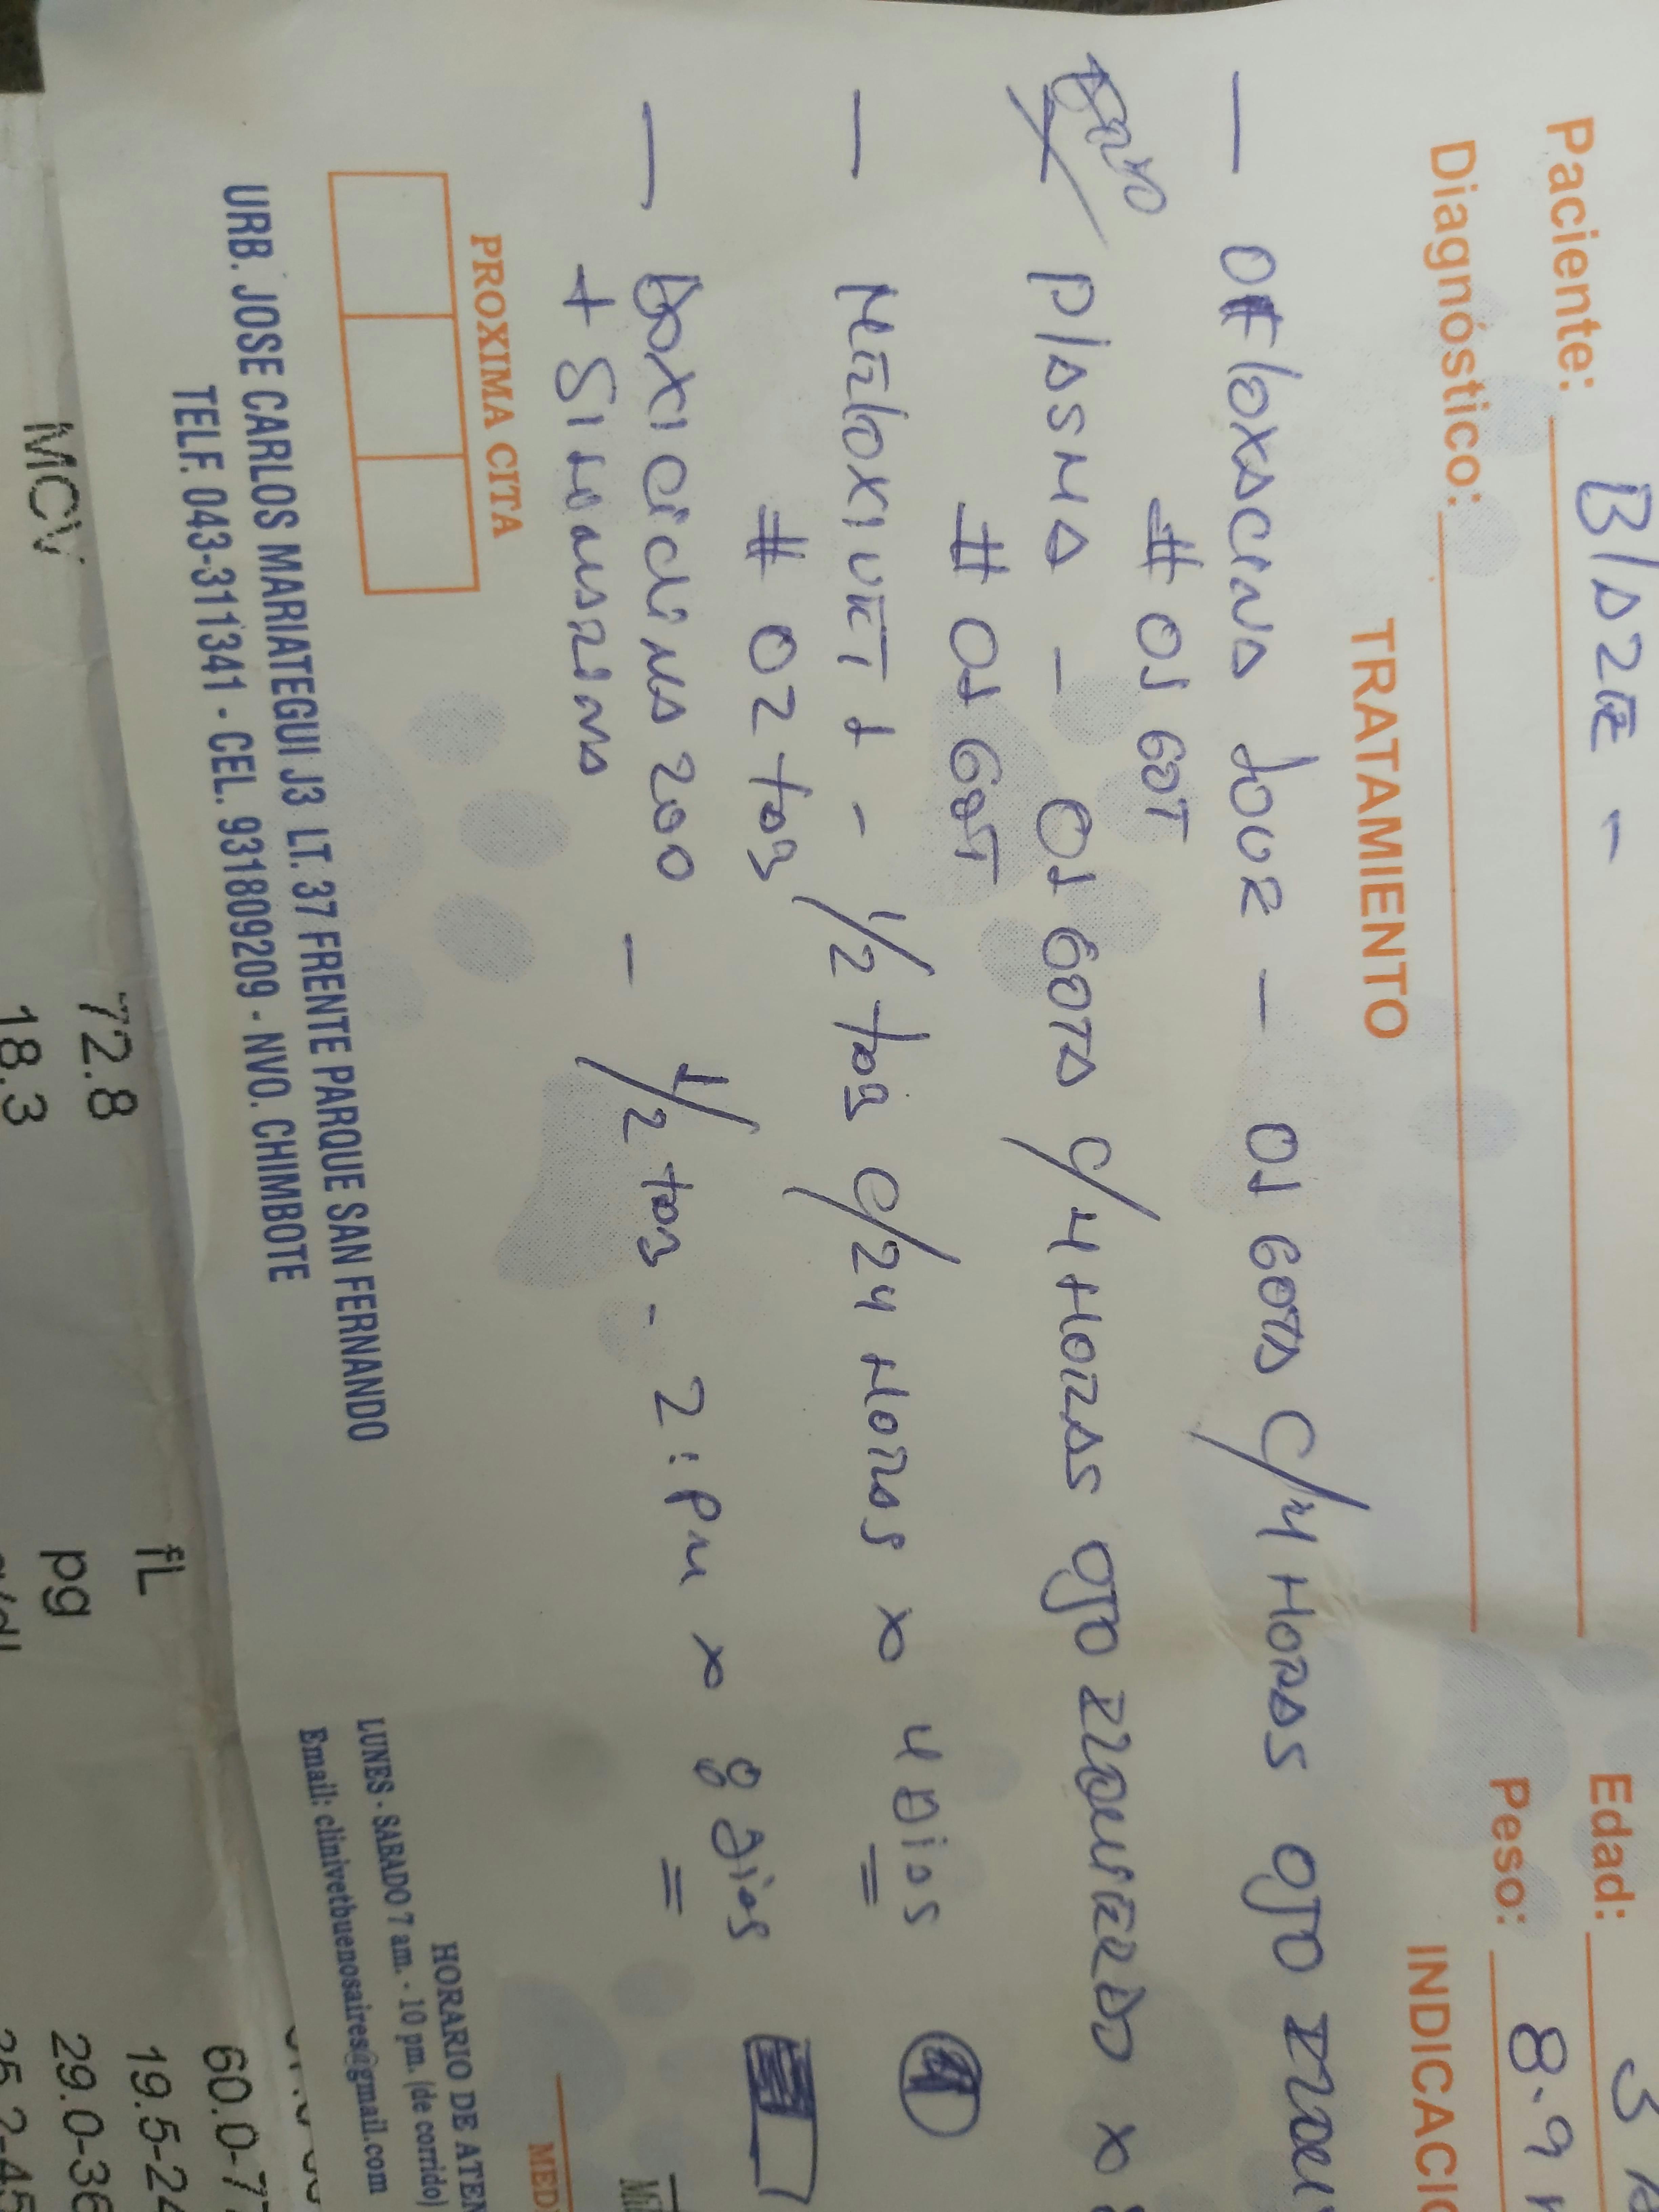 Paciente: Blaze - Edad: 3
Diagnóstico: Peso: 8.9
TRATAMIENTO INDICACIO
- Ofloxacino - 01 gota c/4 Horas ojo
# 01 GOT
Plasma - 01 gota c/4 Horas ojo izquierdo x
# 01 GOT
- Meloxivet 1 - 1/2 tab c/24 Horas x 4 Dias
# 02 tab
- Doxiciclina 200 - 1/2 tab - 2:pm x 8 dias
+
PROXIMA CITA
HORARIO DE ATEN
LUNES - SABADO 7 am. - 10 pm. (de corrido)
Email: clinivetbuenosaires@gmail.com
MED
URB. JOSE CARLOS MARIATEGUI J3 LT. 37 FRENTE PARQUE SAN FERNANDO
TELF. 043-311341 - CEL. 931809209 - NVO. CHIMBOTE
60.0-7
MCV 72.8 fL 19.5-24
18.3 pg 29.0-36